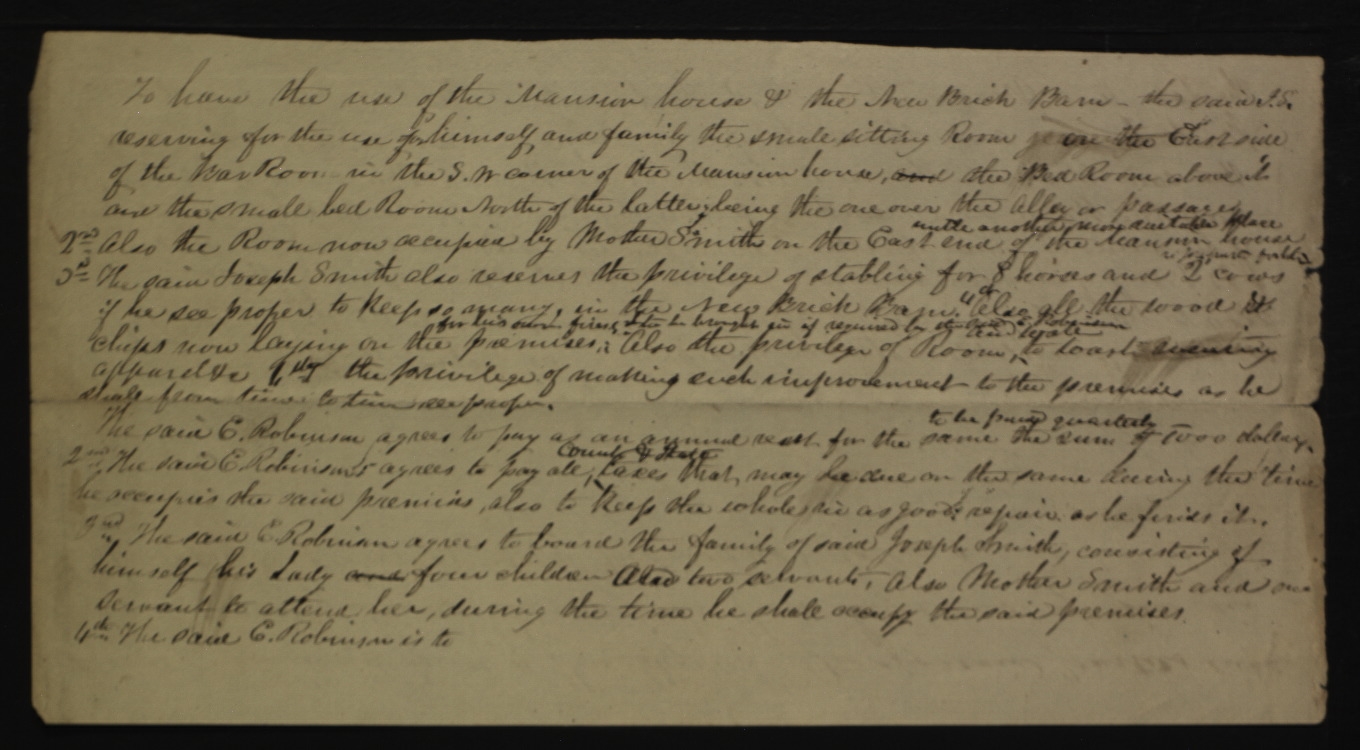 To have the use of the Mansion house & the New Brick Barn – the said J.S.
reserving for the use of himself, and family the small sitting Room on the East side
of the Bar Room in the S.W corner of the Mansion house, and the Bed Room above it
and the small bed Room North of the latter, being the one over the alley or passage,
until another more suitable place
2nd Also the Room now occupied by Mother Smith on the East end of the Mansion house
is prepared
3d The said Joseph Smith also reserves the privilege of stabling for 8 horses and 2 cows
if he see proper to keep so many, in the New Brick Barn. 4th Also all the wood &
for his own fires, to be brought in if required by the said E. Robinson
chips now laying on the premises; Also the privilege of Room, to
apparel &c the privilege of making such improvement to the premises as he
shall from time to time see proper.
to be paid quarterly
The said E. Robinson agrees to pay as an annual rent for the same the sum of 1000 dollars,
County & State
2nd, The said E. Robinson agrees to pay all, taxes that may be due on the same during the time
he occupies the said premises, also to keep the whole in as good repair as he finds it.
3rd The said E Robinson agrees to board the family of said Joseph Smith, consisting of
himself his Lady and four children also two servants, also Mother Smith and one
servant to attend her, during the time he shall occupy the said premises.
4th The said E. Robinson is to